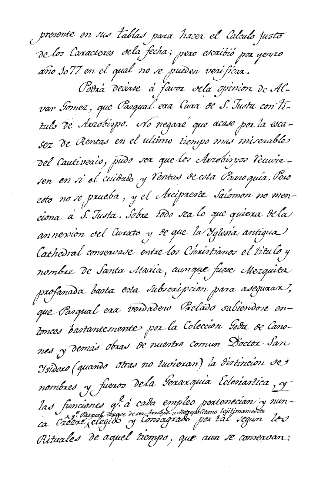 presente en sus tablas para hazer el Calculo justo
de los Caracteres dela fecha; pero escribió por yerro
año 1077 en el qual no se pueden verificar.
Podrá decirse à favor dela opinion de Al-
var Gomez, que Pasqual era Cura de S. Justa con ti-
tulo de Arzobispo. No negaré que acaso por la esca-
sez de Rentas en el ultimo tiempo mas miserable
del Cautiverio, pudo ser que los Arzobispos retuvie-
sen en si el cuidado y Rentas de esta Parroquia. Pero
esto no se prueba, y el Arcipreste Salomon no men-
ciona à S. Justa. Sobre todo sea lo que quiera dela
annexion del Curato y de que la Iglesia antigua
Cathedral conservase entre los Christianos el titulo y
nombre de Santa Maria, aunque fuese Mezquita
profanada basta esta subscripcion para asegurar,
que Pasqual era verdadero Prelado sabiendose en-
tonces bastantemente por la Coleccion Goda de Cano-
nes y demás obras de nuestro comun Doctor San
Isidoro (quando otras no tuvieran) la distincion de
nombres y fueros dela Gerarquia Eclesiastica, y
las funciones q.e à cada empleo pertenecian y nun-
legitimamente
electo y consagrado por tal segun los
Rituales de aquel tiempo, que aun se conservan: